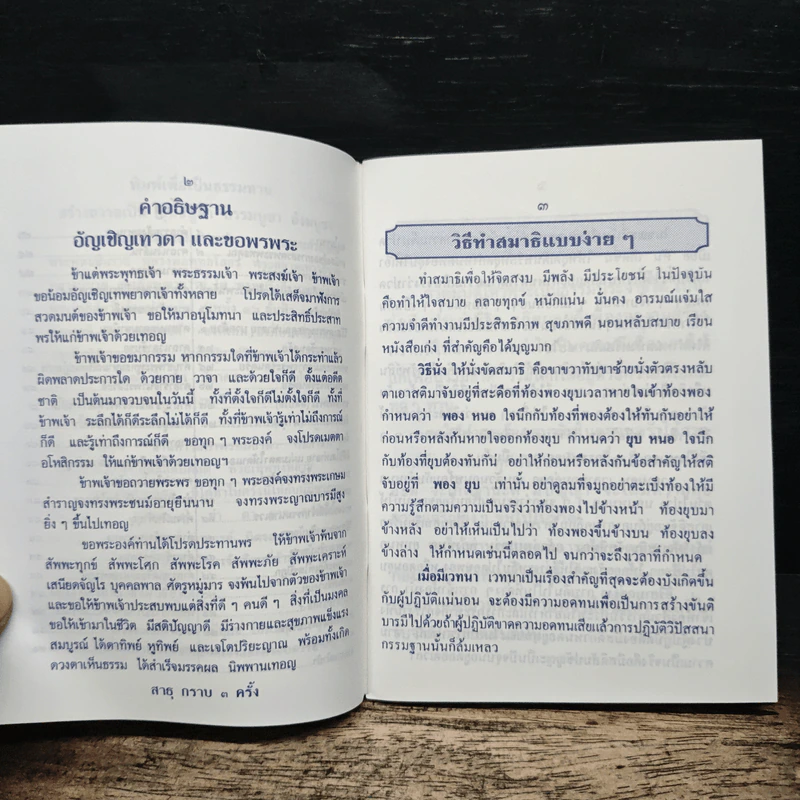 ๒
คำอธิษฐาน
อัญเชิญเทวดา และขอพรพระ
ข้าแต่พระพุทธเจ้า พระธรรมเจ้า พระสงฆ์เจ้า ข้าพเจ้า
ขอน้อมอัญเชิญเทพยาดาเจ้าทั้งหลาย โปรดได้เสด็จมาฟังการ
สวดมนต์ของข้าพเจ้า ขอให้มาอนุโมทนา และประสิทธิ์ประสาท
พรให้แก่ข้าพเจ้าด้วยเทอญ
ข้าพเจ้าขอขมากรรม หากกรรมใดที่ข้าพเจ้าได้กระทำแล้ว
ผิดพลาดประการใด ด้วยกาย วาจา และด้วยใจก็ดี ตั้งแต่อดีต
ชาติ เป็นต้นมาจวบจนในวันนี้ ทั้งที่ตั้งใจก็ดีไม่ตั้งใจก็ดี ทั้งที่
ข้าพเจ้า ระลึกได้ก็ดีระลึกไม่ได้ก็ดี ทั้งที่ข้าพเจ้ารู้เท่าไม่ถึงการณ์
ก็ดี และรู้เท่าถึงการณ์ก็ดี ขอทุก ๆ พระองค์ จงโปรดเมตตา
อโหสิกรรม ให้แก่ข้าพเจ้าด้วยเทอญฯ
ข้าพเจ้าขอถวายพระพร ขอทุก ๆ พระองค์จงทรงพระเกษม
สำราญจงทรงพระชนม์อายุยืนนาน จงทรงพระญาณบารมีสูง
ยิ่ง ๆ ขึ้นไปเทอญ
ขอพระองค์ท่านได้โปรดประทานพร ให้ข้าพเจ้าพ้นจาก
สัพพะทุกข์ สัพพะโศก สัพพะโรค สัพพะภัย สัพพะเคราะห์
เสนียดจัญไร บุคคลพาล ศัตรูหมู่มาร จงพ้นไปจากตัวของข้าพเจ้า
และขอให้ข้าพเจ้าประสบพบแต่สิ่งที่ดี ๆ คนดี ๆ สิ่งที่เป็นมงคล
ขอให้เข้ามาในชีวิต มีสติปัญญาดี มีร่างกายและสุขภาพแข็งแรง
สมบูรณ์ ได้ตาทิพย์ หูทิพย์ และเจโตปริยะญาณ พร้อมทั้งเกิด
ดวงตาเห็นธรรม ได้สำเร็จมรรคผล นิพพานเทอญ
สาธุ กราบ ๓ ครั้ง
๓
วิธีทำสมาธิแบบง่าย ๆ
ทำสมาธิเพื่อให้จิตสงบ มีพลัง มีประโยชน์ ในปัจจุบัน
คือทำให้ใจสบาย คลายทุกข์ หนักแน่น มั่นคง อารมณ์แจ่มใส
ความจำดีทำงานมีประสิทธิภาพ สุขภาพดี นอนหลับสบาย เรียน
หนังสือเก่ง ที่สำคัญคือได้บุญมาก
วิธีนั่ง ให้นั่งขัดสมาธิ คือขาขวาทับขาซ้ายนั่งตัวตรงหลับ
ตาเอาสติมาจับอยู่ที่สะดือที่ท้องพองยุบเวลาหายใจเข้าท้องพอง
กำหนดว่า พอง หนอ ใจนึกกับท้องที่พองต้องให้ทันกันอย่าให้
ก่อนหรือหลังกันหายใจออกท้องยุบ กำหนดว่า ยุบ หนอ ใจนึ
กับท้องที่ยุบต้องทันกัน่ อย่าให้ก่อนหรือหลังกันข้อสำคัญให้สติ
จับอยู่ที่ พอง ยุบ เท่านั้น อย่าดูลมที่จมูกอย่าตะเบ็งท้องให้มี
ความรู้สึกตามความเป็นจริงว่าท้องพองไปข้างหน้า ท้องยุบมา
ข้างหลัง อย่าให้เห็นเป็นไปว่า ท้องพองขึ้นข้างบน ท้องยุบลง
ข้างล่าง ให้กำหนดเช่นนี้ตลอดไป จนกว่าจะถึงเวลาที่กำหนด
เมื่อมีเวทนา เวทนาเป็นเรื่องสำคัญที่สุดจะต้องบังเกิดขึ้น
กับผู้ปฏิบัติแน่นอน จะต้องมีความอดทนเพื่อเป็นการสร้างขันติ
บารมีไปด้วยถ้าผู้ปฏิบัติขาดความอดทนเสียแล้วการปฏิบัติวิปัสสนา
กรรมฐานนั้นก็ล้มเหลว